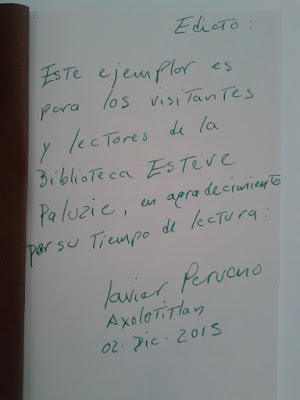 Edicto:
Este ejemplar es
para los visitantes
y lectores de la
Biblioteca Esteve
Paluzie, en agradecimiento
por su tiempo de lectura:
Javier Perucho
Axolotitlan
02. Dic. 2015